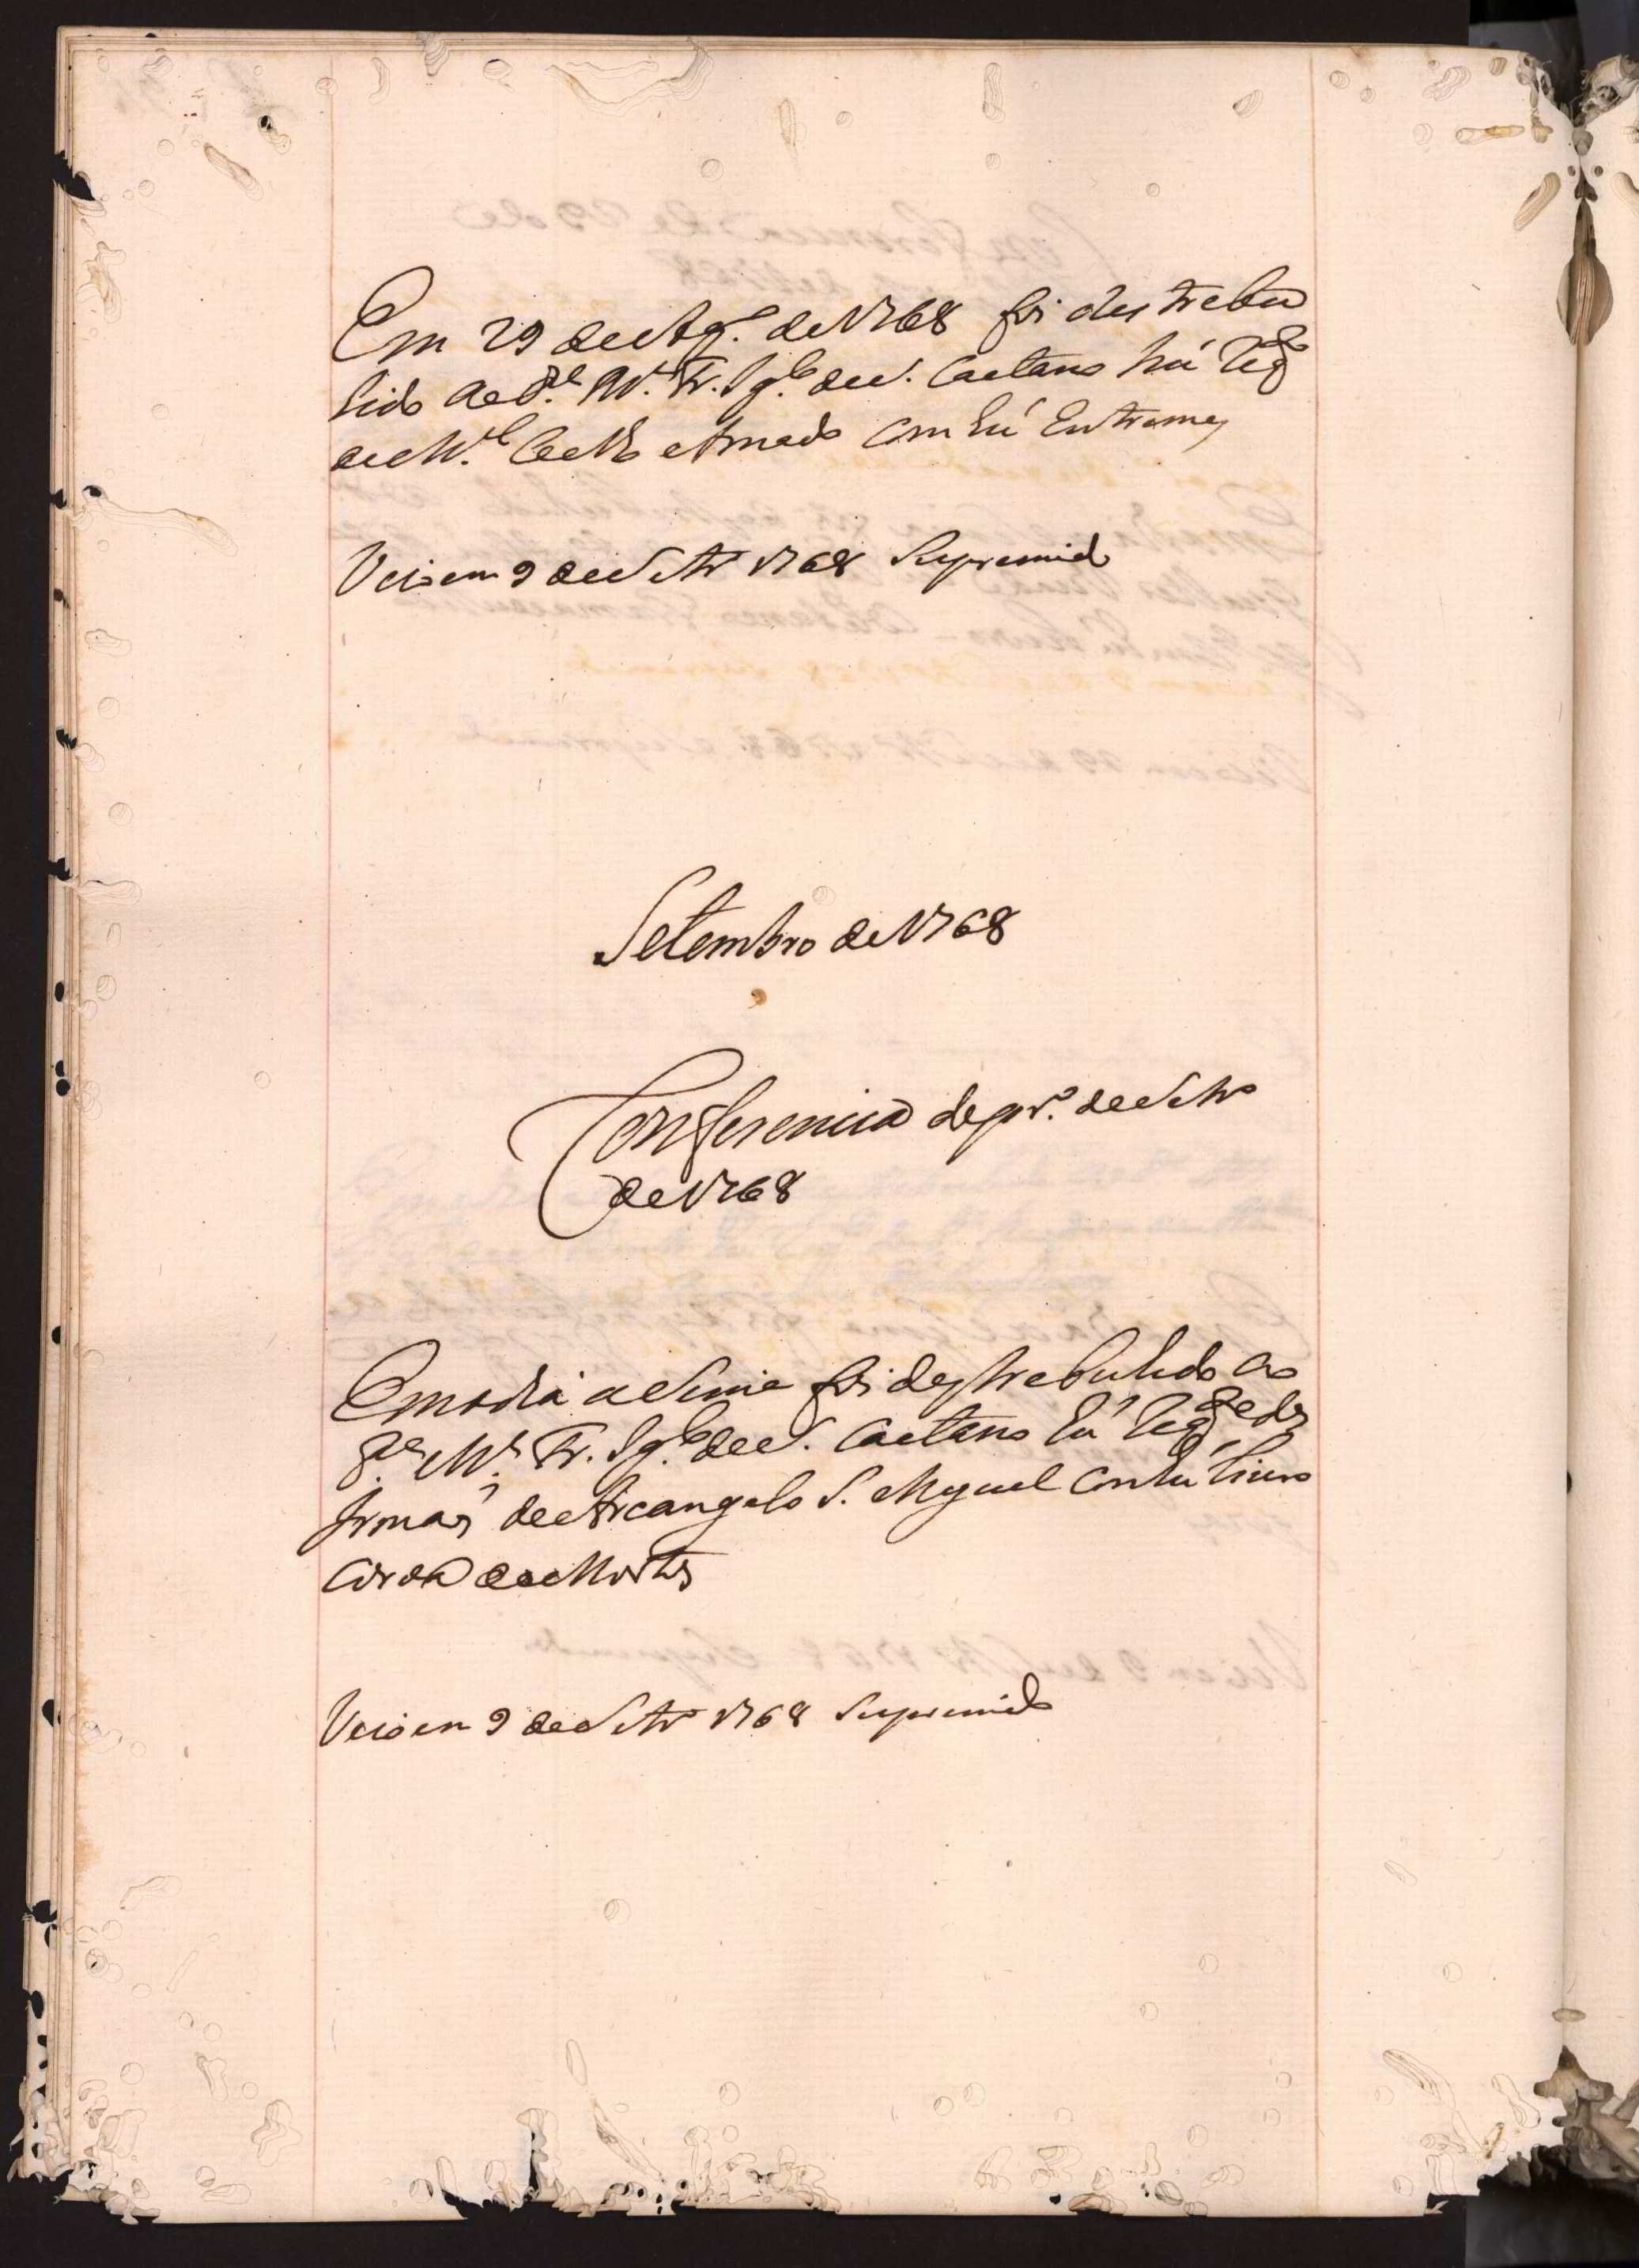 Em 29 de Ag.º de 1768 foi destrebu
hido ao P.e M.e Fr. Ig.co de S. Caetano hũ Req.to
de M.el Coelho Amado com hũ Entremes
Veio em 9 de Setr.º 1768 Supremido
Setembro de 1768
Conferencia de pr.º de Setr.º
de 1768
Em o dia asima foi destrebuhido ao
P.e M.e Fr. Ig.co de S. Caetano hũ Req.to dos
Irmaos de Arcangelo S. Miguel com hũ livro
Veio em 9 de Setr.º 1768 Supremido